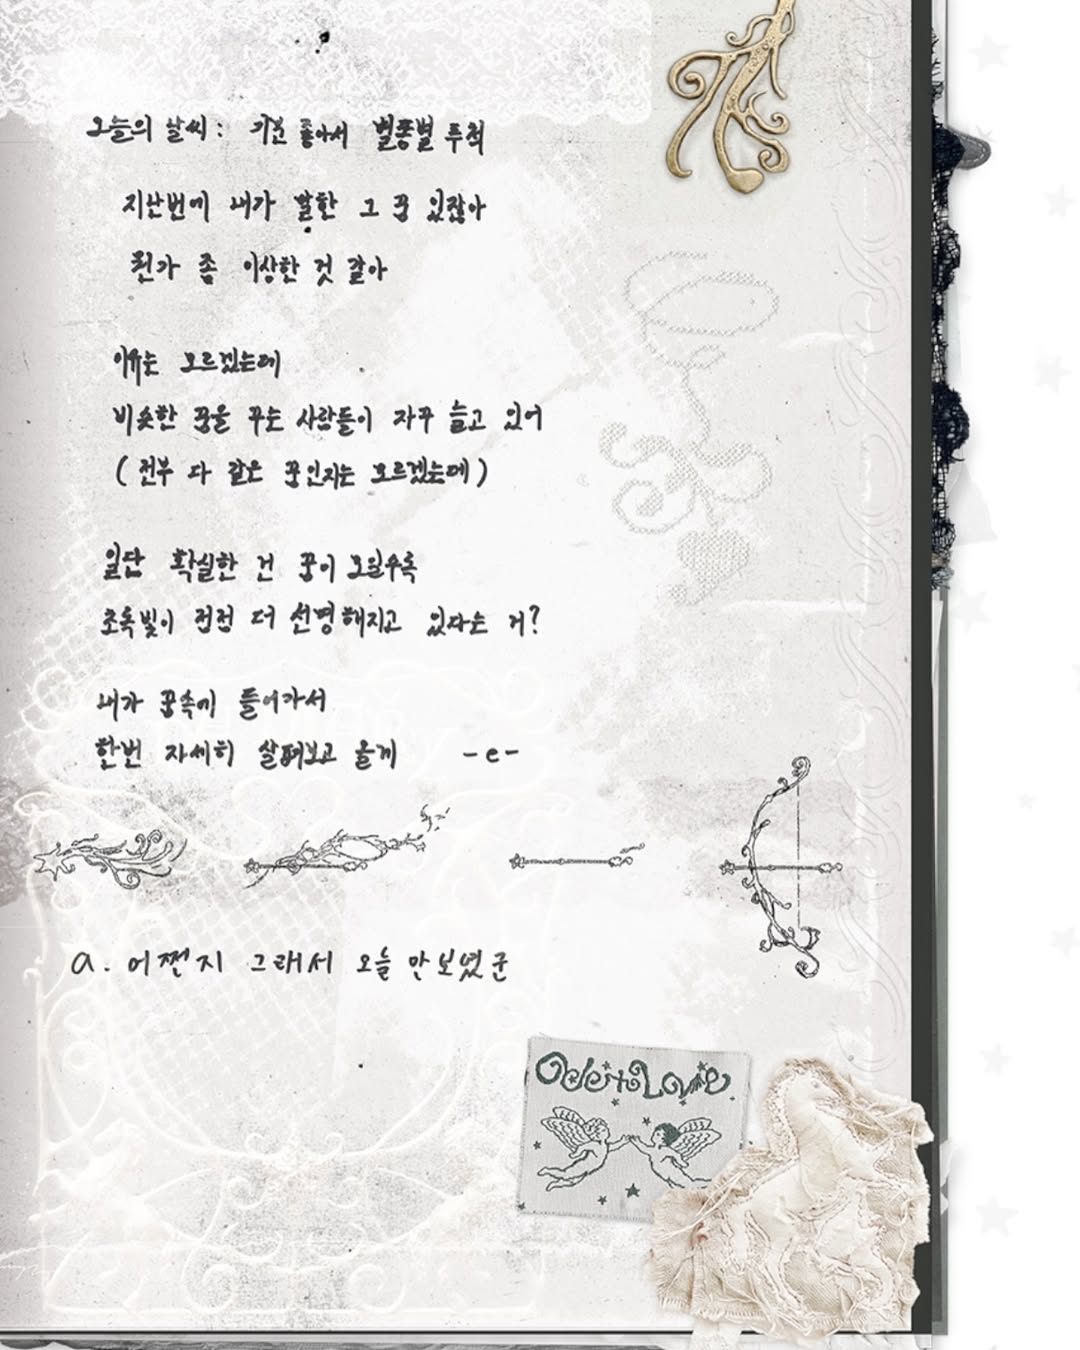 오늘의 날씨 : 기분 좋아서 별똥별 투척
지난번에 내가 말한 그 꿈 있잖아
뭔가 좀 이상한 것 같아
이유는 모르겠는데
비슷한 꿈을 꾸는 사람들이 자꾸 늘고 있어
( 전부 다 같은 꿈인지는 모르겠는데 )
일단 확실한 건 꿈이 모일수록
초록빛이 점점 더 선명해지고 있다는 거?
내가 꿈속에 들어가서
한번 자세히 살펴보고 올게 - e -
a. 어쩐지 그래서 오늘 안보였군
Ode to Love